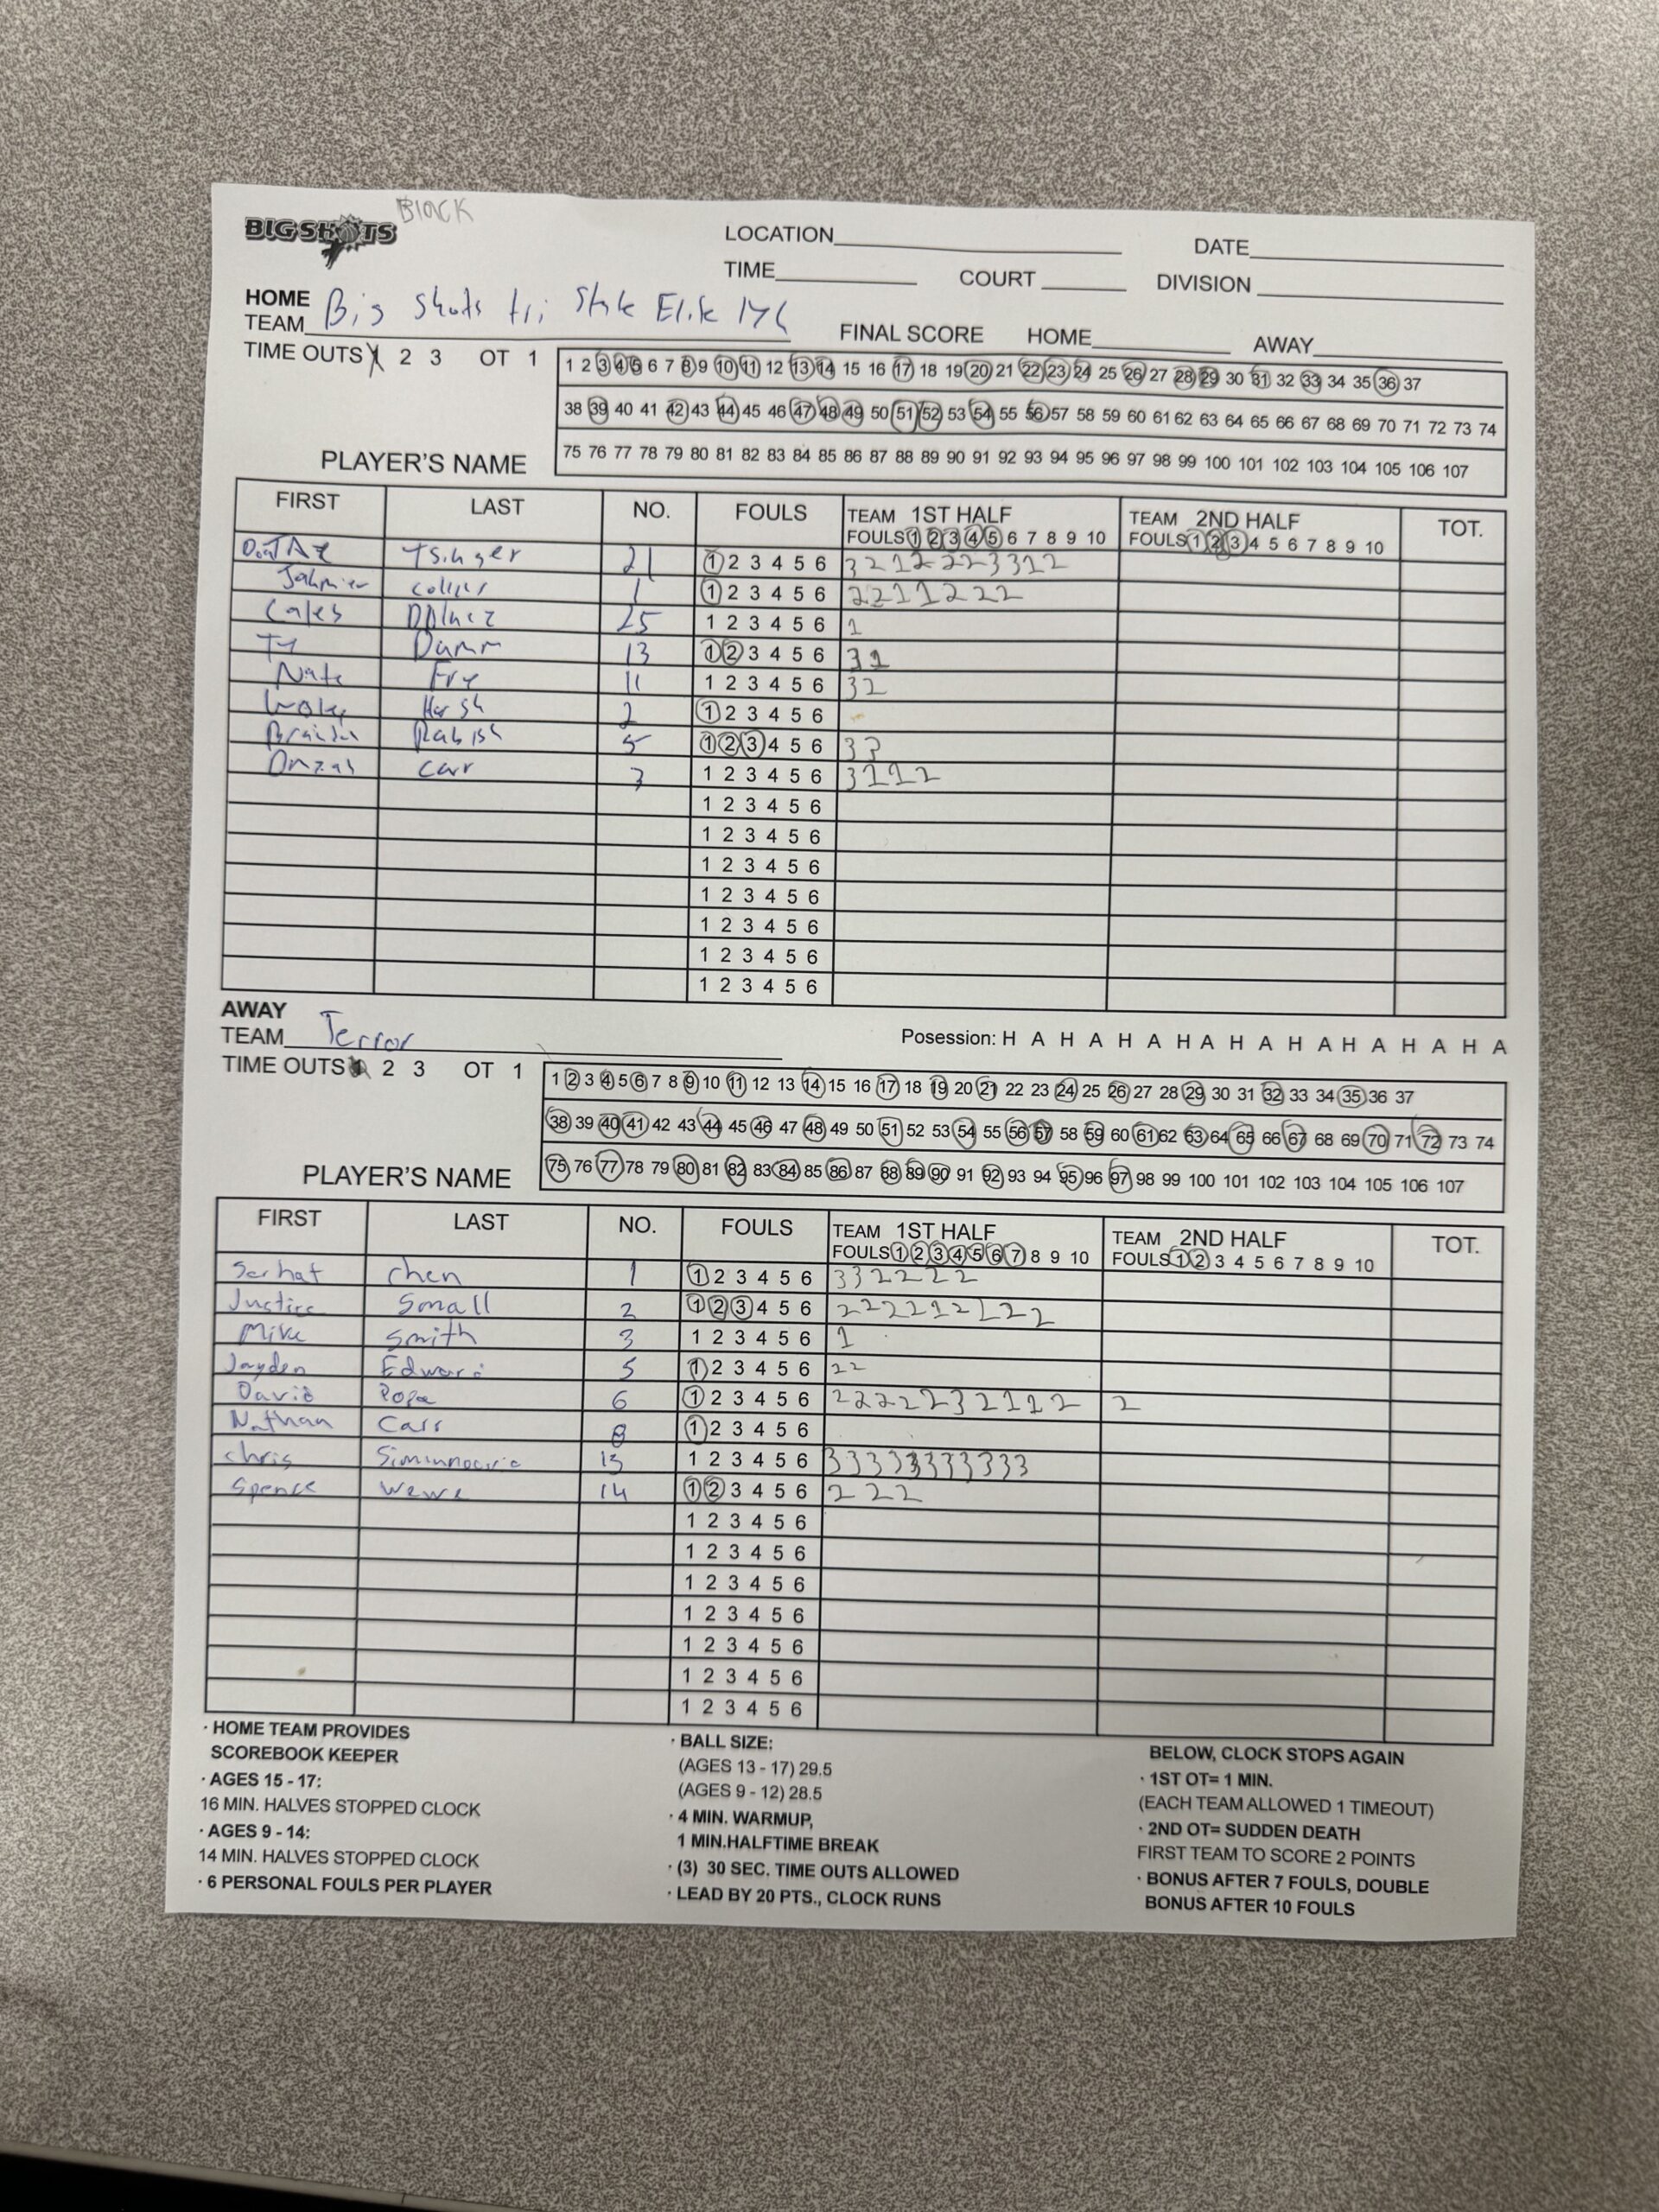 BIG SHOTS Black
LOCATION DATE
TIME COURT DIVISION
HOME
TEAM Big Shots tri State Elite 176
FINAL SCORE HOME AWAY
TIME OUTS 1 2 3 OT 1
1 2 3 4 5 6 7 8 9 10 11 12 13 14 15 16 17 18 19 20 21 22 23 24 25 26 27 28 29 30 31 32 33 34 35 36 37
38 39 40 41 42 43 44 45 46 47 48 49 50 51 52 53 54 55 56 57 58 59 60 61 62 63 64 65 66 67 68 69 70 71 72 73 74
75 76 77 78 79 80 81 82 83 84 85 86 87 88 89 90 91 92 93 94 95 96 97 98 99 100 101 102 103 104 105 106 107
PLAYER'S NAME
FIRST LAST NO. FOULS TEAM 1ST HALF TEAM 2ND HALF TOT.
FOULS 1 2 3 4 5 6 7 8 9 10 FOULS 1 2 3 4 5 6 7 8 9 10
21 1 2 3 4 5 6 3 2 1 2 2 2 3 3 1 2
Jahmier 1 1 2 3 4 5 6 2 2 1 1 2 2 2
Caleb 25 1 2 3 4 5 6 1
Ty Damm 13 1 2 3 4 5 6 3 1
Nate Fry 11 1 2 3 4 5 6 3 2
2 1 2 3 4 5 6
5 1 2 3 4 5 6 3 3
Carr 3 1 2 3 4 5 6 3 1 1 2
1 2 3 4 5 6
1 2 3 4 5 6
1 2 3 4 5 6
1 2 3 4 5 6
1 2 3 4 5 6
1 2 3 4 5 6
1 2 3 4 5 6
AWAY
TEAM Terror
Posession: H A H A H A H A H A H A H A H A H A
TIME OUTS 1 2 3 OT 1
1 2 3 4 5 6 7 8 9 10 11 12 13 14 15 16 17 18 19 20 21 22 23 24 25 26 27 28 29 30 31 32 33 34 35 36 37
38 39 40 41 42 43 44 45 46 47 48 49 50 51 52 53 54 55 56 57 58 59 60 61 62 63 64 65 66 67 68 69 70 71 72 73 74
75 76 77 78 79 80 81 82 83 84 85 86 87 88 89 90 91 92 93 94 95 96 97 98 99 100 101 102 103 104 105 106 107
PLAYER'S NAME
FIRST LAST NO. FOULS TEAM 1ST HALF TEAM 2ND HALF TOT.
FOULS 1 2 3 4 5 6 7 8 9 10 FOULS 1 2 3 4 5 6 7 8 9 10
Serhat Chen 1 1 2 3 4 5 6 3 3 2 2 2 2
Justice Small 2 1 2 3 4 5 6 2 2 2 2 1 2 2 2 2
Mike Smith 3 1 2 3 4 5 6 1
Jayden 5 1 2 3 4 5 6 2 2
David Pope 6 1 2 3 4 5 6 2 2 2 2 2 3 2 1 1 2 2
Nathan Cass 8 1 2 3 4 5 6
Chris 13 1 2 3 4 5 6 3 3 3 3 3 3 3 3 3 3 3
Spence Wewe 14 1 2 3 4 5 6 2 2 2
1 2 3 4 5 6
1 2 3 4 5 6
1 2 3 4 5 6
1 2 3 4 5 6
1 2 3 4 5 6
1 2 3 4 5 6
1 2 3 4 5 6
· HOME TEAM PROVIDES
SCOREBOOK KEEPER
· AGES 15 - 17:
16 MIN. HALVES STOPPED CLOCK
· AGES 9 - 14:
14 MIN. HALVES STOPPED CLOCK
· 6 PERSONAL FOULS PER PLAYER
· BALL SIZE:
(AGES 13 - 17) 29.5
(AGES 9 - 12) 28.5
· 4 MIN. WARMUP,
1 MIN.HALFTIME BREAK
· (3) 30 SEC. TIME OUTS ALLOWED
· LEAD BY 20 PTS., CLOCK RUNS
BELOW, CLOCK STOPS AGAIN
· 1ST OT= 1 MIN.
(EACH TEAM ALLOWED 1 TIMEOUT)
· 2ND OT= SUDDEN DEATH
FIRST TEAM TO SCORE 2 POINTS
· BONUS AFTER 7 FOULS, DOUBLE
BONUS AFTER 10 FOULS